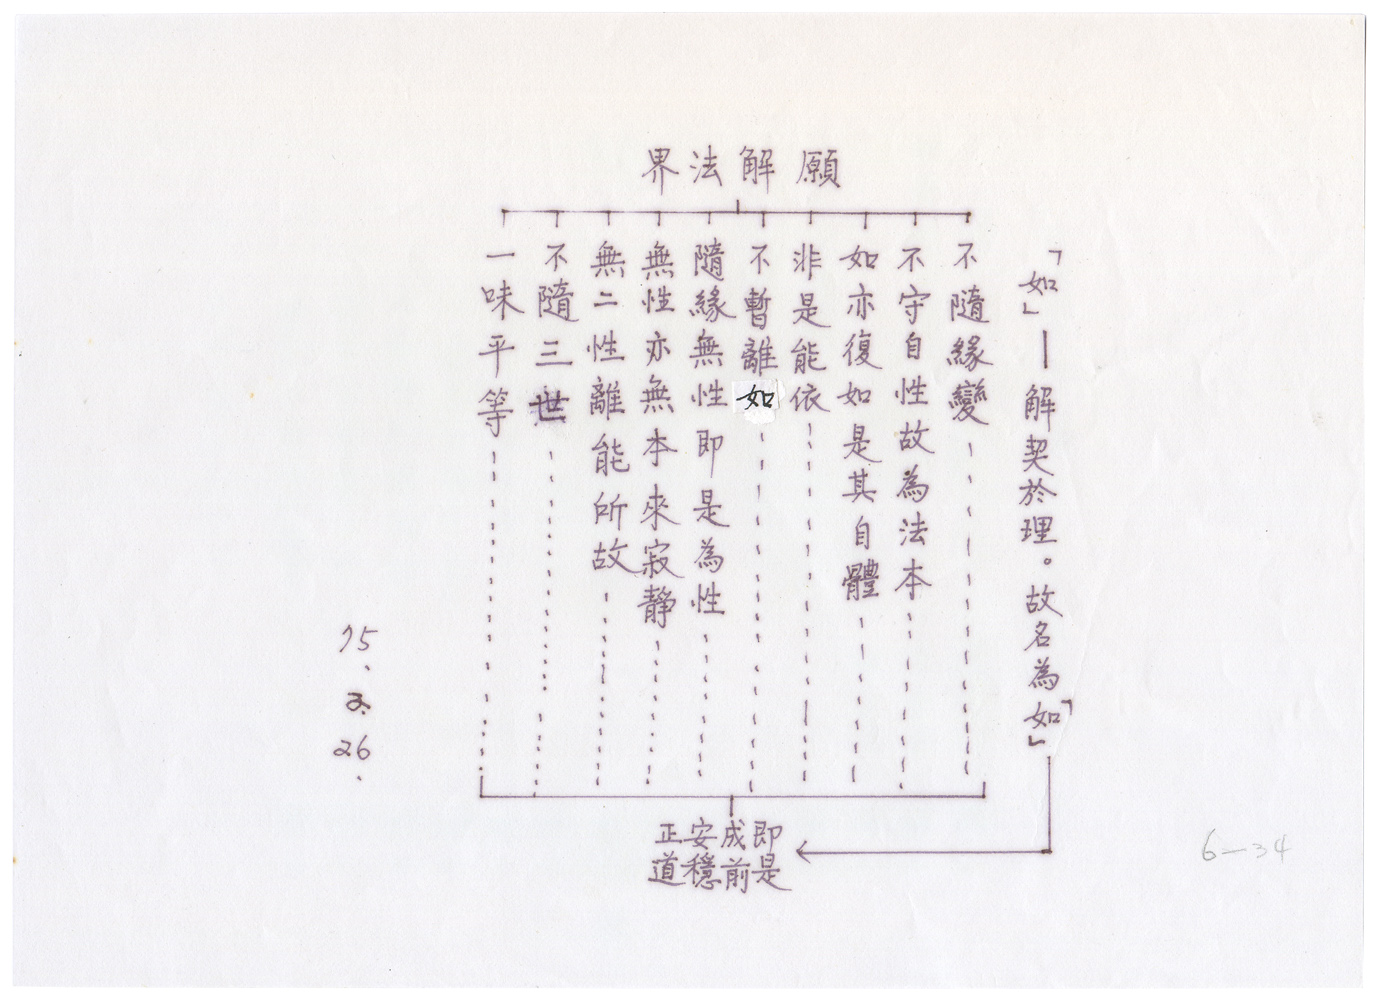 「如」—解契於理。故名為「如」
願解法界
不隨緣變
不守自性故為法本
如亦復如是其自體
非是能依
不暫離如
隨緣無性即是為性
無性亦無本來寂靜
無二性離能所故
不隨三世
一味平等
即是
成前
安穩
正道
75.
26.
6-34